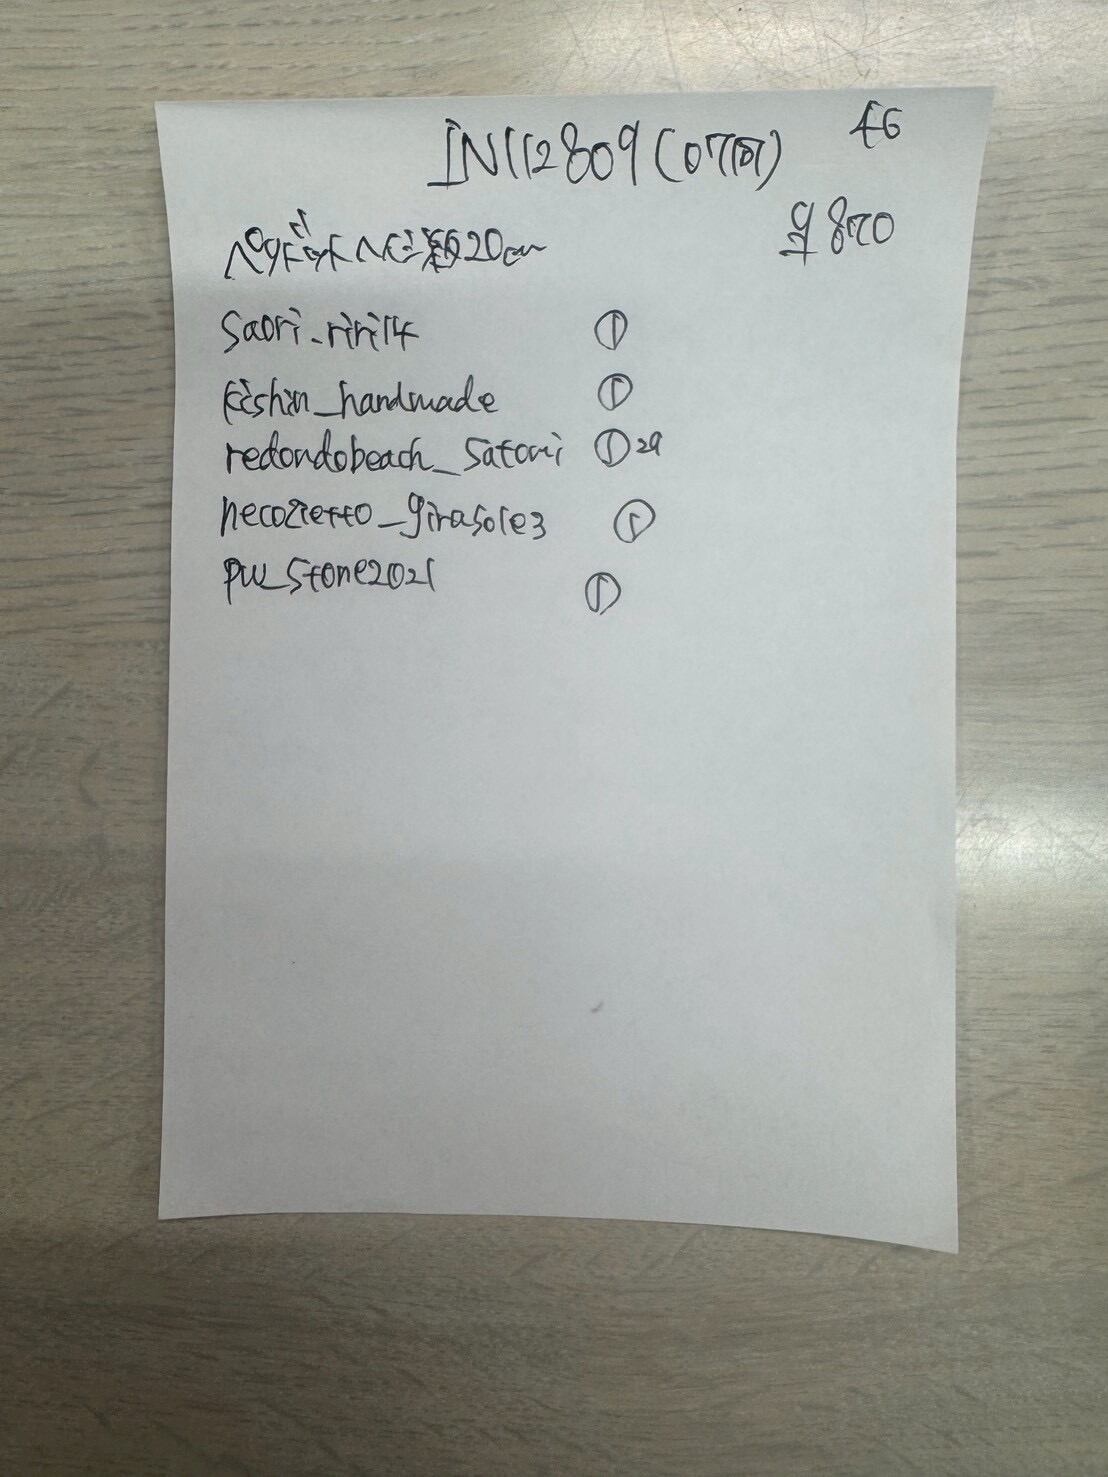 IN112809(0717) 46
20cm 870
saori_riri14 ①
kishin_handmade ①
redondobeach_satomi ① 29
necozietto_girasole3 ①
pw_stone2021 ①